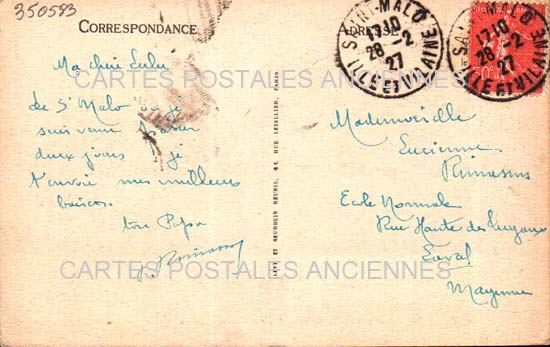 350593
CORRESPONDANCE
ADRESSE
SAINT-MALO
17 10
28 -2
27
ILLE ET VILAINE
SAINT-MALO
17 10
28 -2
27
ILLE ET VILAINE
Ma chère Lulu
CARTES POSTALES ANCIENNES
de St Malo où je
suis venu passer
deux jours je
t'envoie mes meilleurs
baisers
ton Papa
Mademoiselle
Lucienne
École Normale
Rue Haute des
Laval
Mayenne
LEVY ET NEURDEIN REUNIS, 44 RUE LETELLIER, PARIS
CARTES POSTALES ANCIENNES